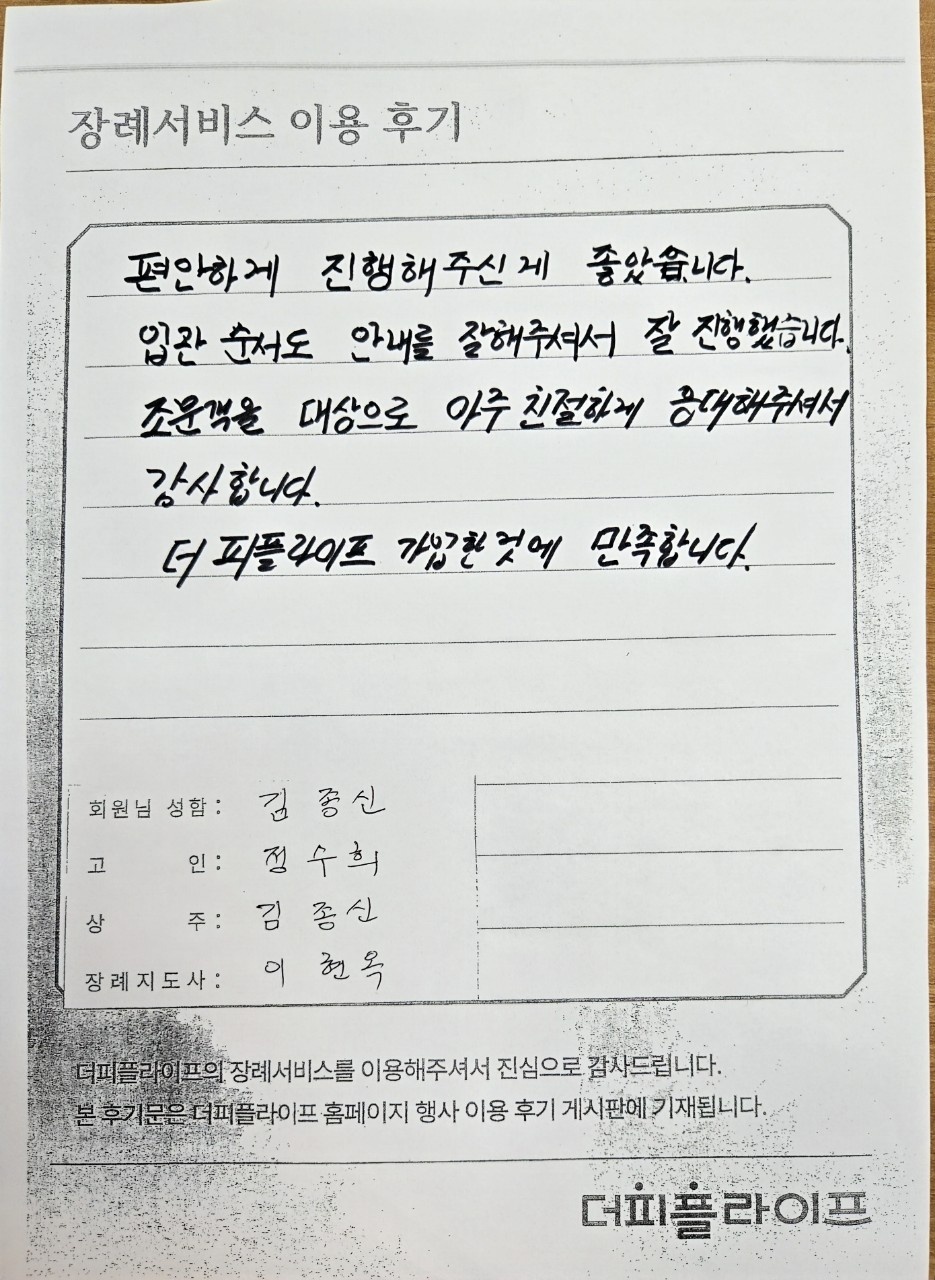 장례서비스 이용 후기
편안하게 진행해주신게 좋았습니다.
입관 순서도 안내를 잘해주셔서 잘 진행했습니다.
조문객을 대상으로 아주 친절하게 응대해주셔서
감사합니다.
더피플라이프 가입한것에 만족합니다.
회원님 성함: 김종신
고 인: 정수희
상 주: 김종신
장례지도사: 이현옥
더피플라이프의 장례서비스를 이용해주셔서 진심으로 감사드립니다.
본 후기문은 더피플라이프 홈페이지 행사 이용 후기 게시판에 기재됩니다.
더피플라이프